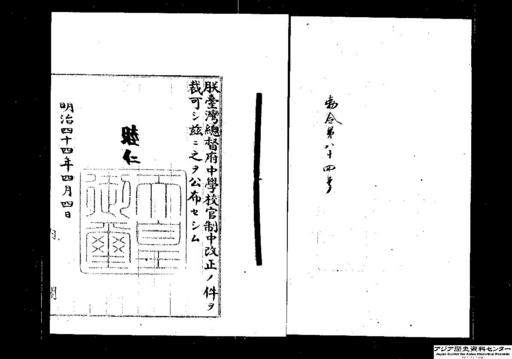 勅令第八十四号
朕臺灣總督府中學校官制中改正ノ件ヲ
裁可シ茲ニ之ヲ公布セシム
睦仁
天皇御璽
明治四十四年四月四日
内
閣
アジア歴史資料センター
Japan Center for Asian Historical Records